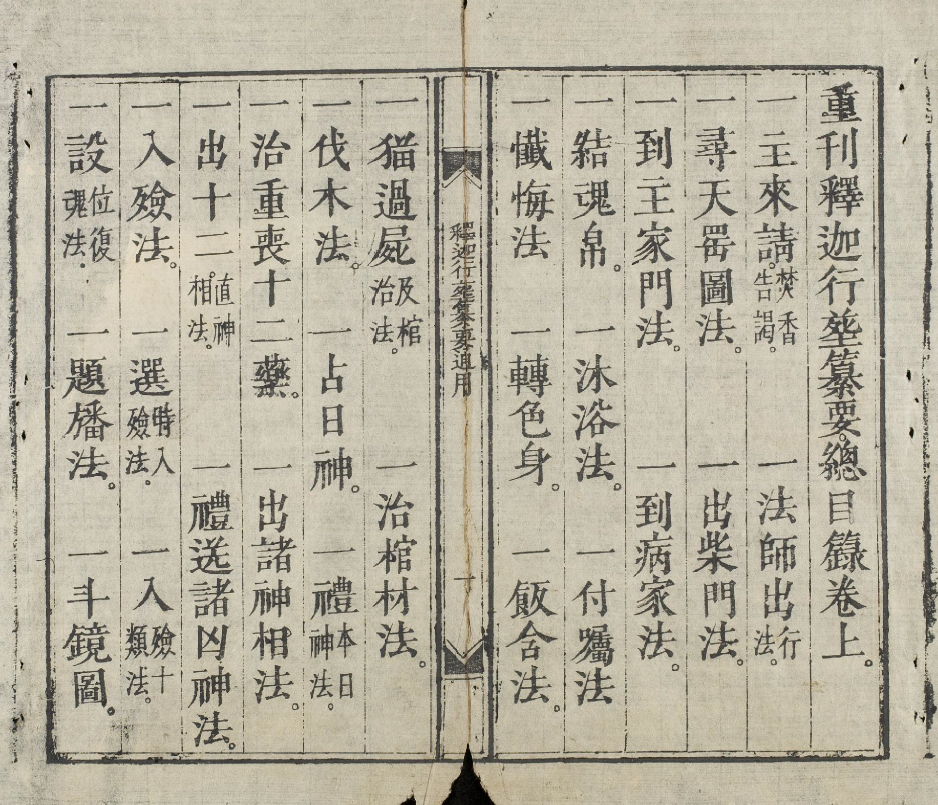 重刊釋迦行塟纂要。總目錄卷上。
一主來請。焚香告謁。 一法師出行法。
一尋天罡圖法。 一出柴門法。
一到主家門法。 一到病家法。
一結魂帛。 一沐浴法。 一付囑法
一懺悔法 一轉色身。 一飯含法。
釋迦行塟纂要通用
一猫過屍及棺治法。 一治棺材法。
一伐木法。 一占日神。 一禮本日神法。
一治重喪十二藥。 一出諸神相法。
一出十二直神相法。 一禮送諸凶神法。
一入殮法。 一選時入殮法。 一入殮十類法。
一設位復魂法。 一題旙法。 一斗鏡圖。